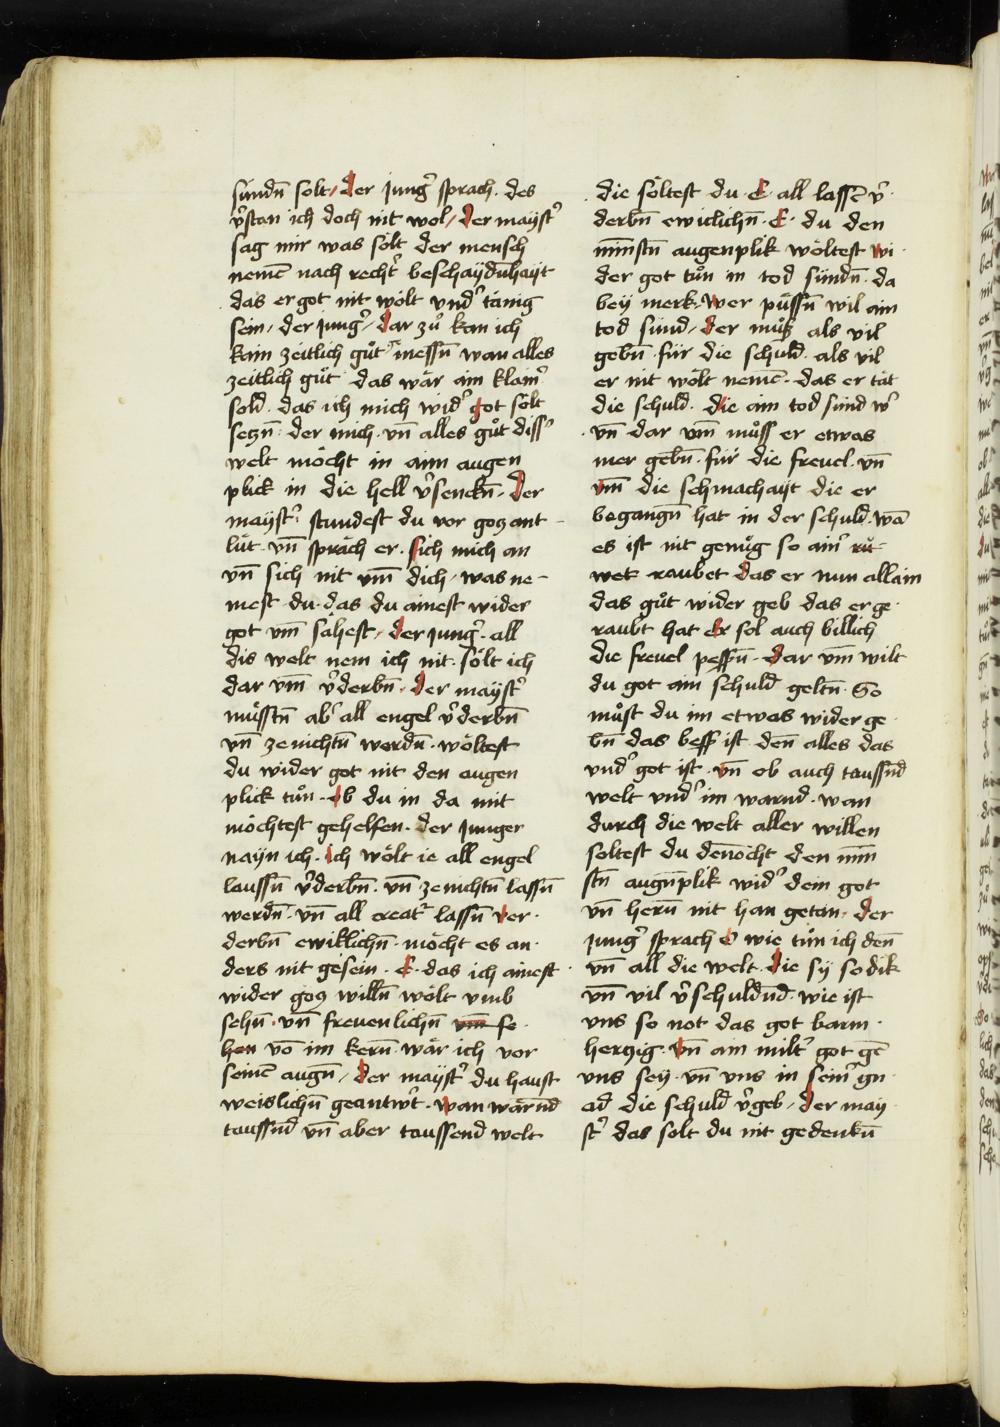 sündn̄ solt / der jung᷑ sprach · des
v᷑stan ich doch nit wol / der mayst᷑
sag mir was sölt der mensch
nemē nach recht᷑ beschaydn̄hayt
das er got nit wölt vnd᷑ tänig
sein / der jung᷑ / dar zů kan ich
kain zeitlich gůt messn̄ wan alles
zeitlich gůt das wär ain klain᷑
sold · das ich mich wid᷑ got sölt
seczn̄ · der mich · vn̄ alles gůt diss᷑
welt möcht in aim augen
plick in die hell v᷑senckn̄ · Der
mayst᷑ · stundest du vor gocz ant-
lüt · vn̄ spräch er · sich mich an
vn̄ sich nit vm̄ dich / was ne-
mest du · das du ainest wider
got vm̄ sahest / der jung᷑ · all
dis welt nem ich nit · sölt ich
dar vm̄ v᷑derbn̄ · der mayst᷑
müsstn̄ ab᷑ all engel v᷑derbn̄
vn̄ ze nichtn̄ werdn̄ · wöltest
du wider got nit den augen
plick tůn · ob du in da mit
möchtest gehelfen · der junger
nayn ich · ich wölt ie all engel
laussn̄ v᷑derbn̄ · vn̄ ze nichtn̄ lassn̄
werdn̄ · vn̄ all creat᷑ lassn̄ ver·
derbn̄ ewiklichn̄ · möcht es an·
ders nit gesein · E · das ich ainest
wider gocz willn̄ wölt vmb
sehn̄ · vn̄ freuenlichn̄ vm̄ se·
hen vō im kern̄ · wär ich vor
seinē augn̄ / der mayst᷑ du haust
weislichn̄ geantw᷑t · wan warn̄d
taussn̄d vn̄ aber taussend welt
die söltest du · E · all lassē v᷑·
derbn̄ ewiclichn̄ · E · du den
minstn̄ augenplik wöltest wi·
der got tůn in tod sündn̄ · da
bey merk · wer püssn̄ wil ain
tod sünd / der můß als vil
gebn̄ für die schuld · als vil
er nit wölt nemē · das er tät
die schuld · die ain tod sünd w᷑
vn̄ dar vm̄ můss er etwas
mer gebn̄ · für die freuel · vn̄
vm̄ die schmachayt die er
begangn̄ hat in der schuld · wā
es ist nit genůg so ain᷑
raubet das er nun allain
das gůt wider geb das er ge·
raubt hat er sol auch billich
die freuel pessn̄ · dar vm̄ wilt
du got ain schuld geltn̄ · So
můst du im etwas wider ge·
bn̄ das bess᷑ ist den̄ alles das
vnd᷑ got ist · vn̄ ob auch taussn̄d
welt vnd᷑ im warnd · wan
durch die welt aller willen
soltest du den̄ocht den min̄
stn̄ augn̄plik wid᷑ dein got
vn̄ hern̄ nit han getan · der
jung᷑ sprach O wie tůn ich den̄
vn̄ all die welt · die sy so dik
vn̄ vil v᷑schuldn̄d · wie ist
vns so not das got barm·
herczig · vn̄ ain milt᷑ got gē
vns sey · vn̄ vns in sein᷑ gn·
ad die schuld v᷑geb / der may·
st᷑ das solt du nit gedenkn̄